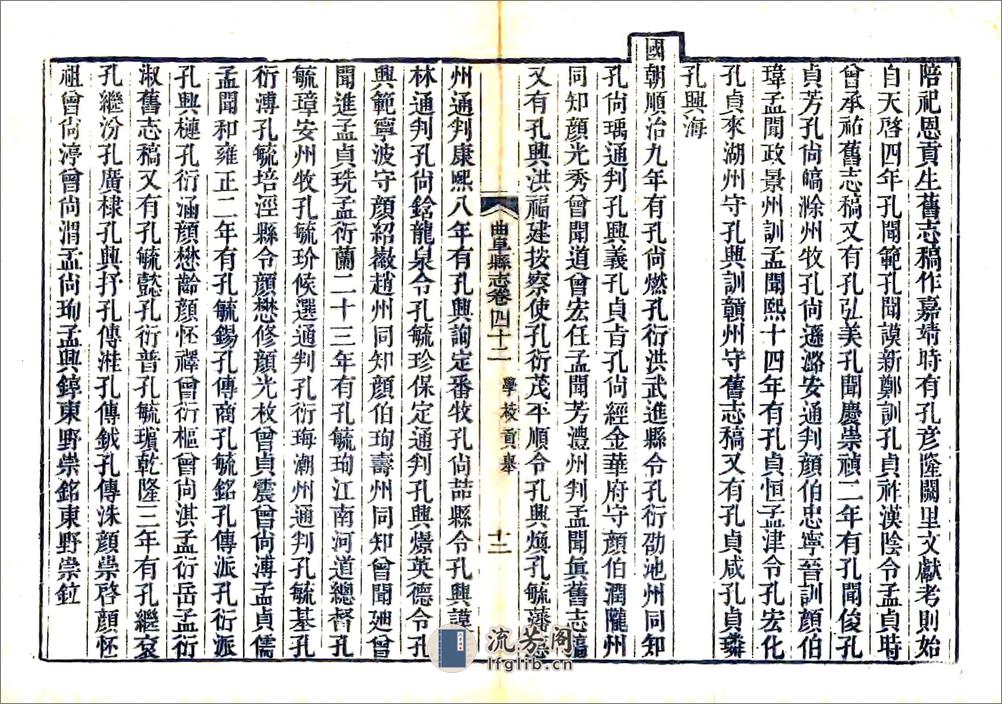 陪祀恩貢生舊志稿作嘉靖時有孔彦隆闕里文獻考則始
自天啓四年孔聞範孔聞謨新鄭訓孔貞祚漢陰令孟貞時
曾承祐舊志稿又有孔弘美孔聞慶崇禎二年有孔聞俊孔
貞芳孔尙皜滁州牧孔尙遜潞安通判顏伯忠寧晉訓顏伯
瑋孟聞政景州訓孟聞熙十四年有孔貞恒孟津令孔宏化
孔貞來湖州守孔興訓贛州守舊志稿又有孔貞咸孔貞璘
孔興海
國朝順治九年有孔尙燃孔衍洪武進縣令孔衍劭池州同知
孔尙瑀通判孔興義孔貞旹孔尙經金華府守顏伯潤隴州
同知顏光秀曾聞道曾宏任孟聞芳澧州判孟聞眞舊志稿
又有孔興洪福建按察使孔衍茂平順令孔興煥孔毓藩
曲阜縣志卷四十二 學校貢舉 十二
州通判康熙八年有孔興詢定番牧孔尙喆縣令孔興謨
林通判孔尙鋡龍泉令孔毓珍保定通判孔興爆英德令孔
興範寧波守顏紹微趙州同知顏伯珣壽州同知曾聞廸曾
聞進孟貞珗孟衍蘭二十三年有孔毓珣江南河道總督孔
毓璋安州牧孔毓玢候選通判孔衍珻潮州通判孔毓基孔
衍溥孔毓培涇縣令顏懋修顏光枚曾貞震曾尙溥孟貞儒
孟聞和雍正二年有孔毓錫孔傳商孔毓銘孔傳派孔衍派
孔興槤孔衍涵顏懋齡顏怀禪曾衍樞曾尙淇孟衍岳孟衍
淑舊志稿又有孔毓懿孔衍普孔毓璸乾隆三年有孔繼袞
孔繼汾孔廣棣孔興抒孔傳漼孔傳鉞孔傳洙顏崇啓顏怀
祖曾尙渟曾尙渭孟尙珣孟興錞東野崇銘東野崇鉝
流芳阁
lfglib.cn